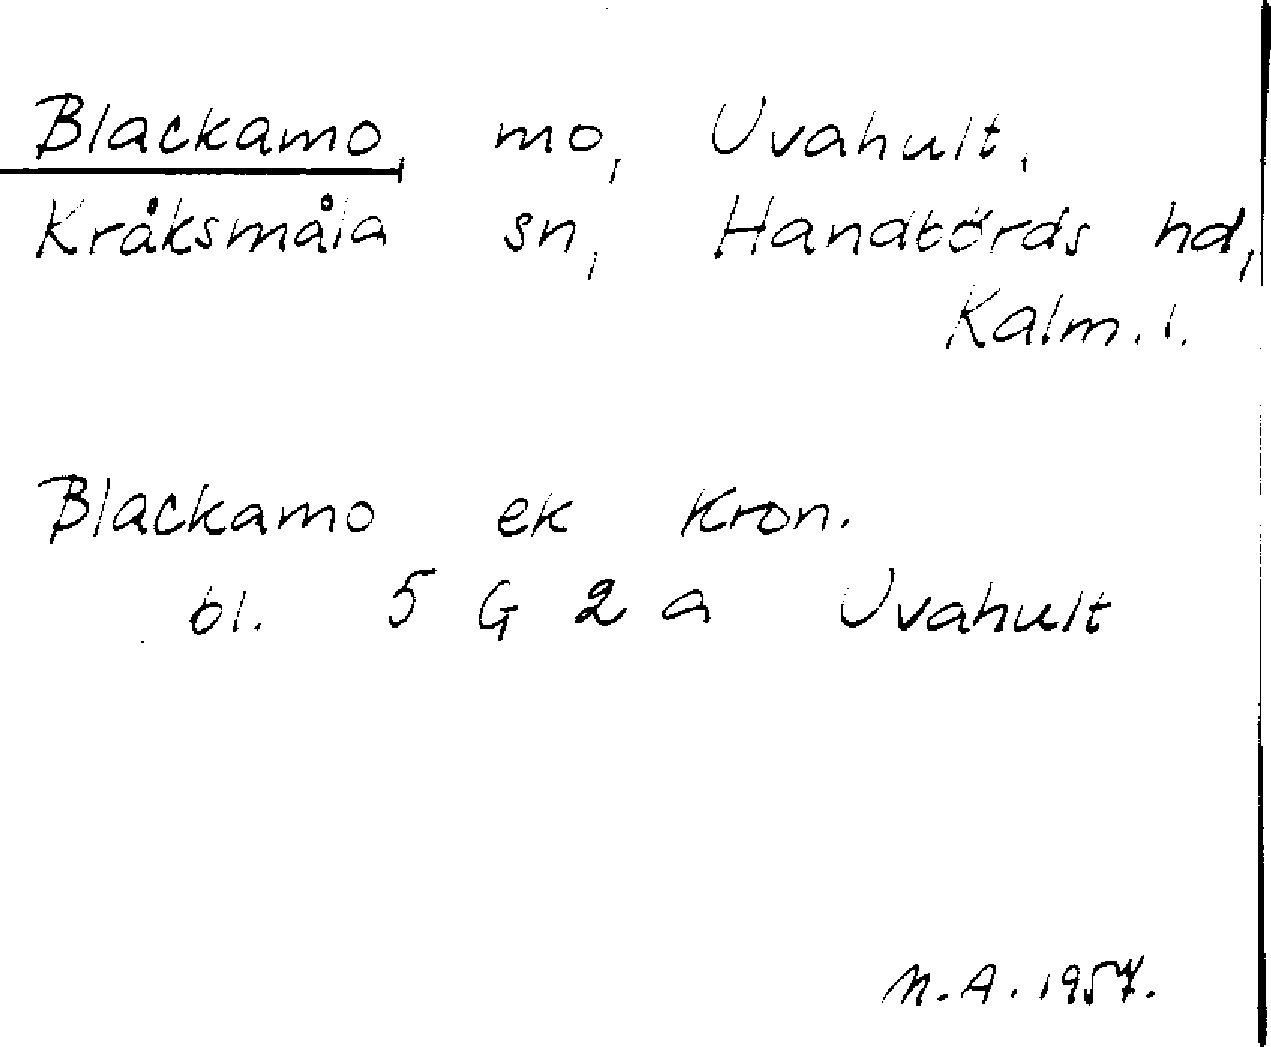 Blackamo, mo, Uvahult,
Kråksmåla sn, Handbörds hd,
Kalm. l.
Blackamo ek Kron.
bl. 5 G 2 a Uvahult
N.A. 1957.